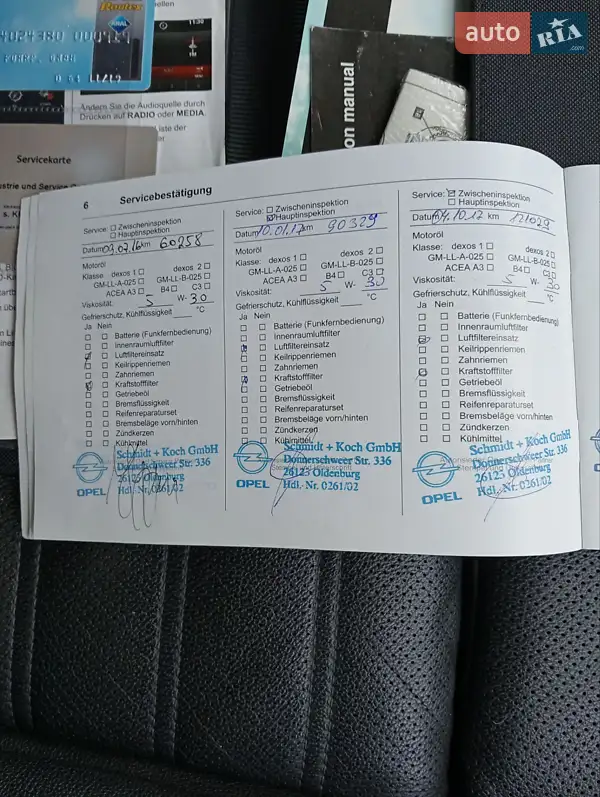 auto RIA .com
Routex
ARAL
11:30
Ändern Sie die Audioquelle durch
Drücken auf RADIO oder MEDIA.
on manual
Servicekarte
6 Servicebestätigung
Service: Zwischeninspektion
Hauptinspektion
Datum 07.07.16 km 60258
Motoröl
Klasse: dexos 1 dexos 2
GM-LL-A-025 GM-LL-B-025
ACEA A3 B4 C3
Viskosität: 5 W- 30
Gefrierschutz, Kühlflüssigkeit °C
Ja Nein
Batterie (Funkfernbedienung)
Innenraumluftfilter
Luftfiltereinsatz
Keilrippenriemen
Zahnriemen
Kraftstofffilter
Getriebeöl
Bremsflüssigkeit
Reifenreparaturset
Bremsbeläge vorn/hinten
Zündkerzen
Kühlmittel
Schmidt + Koch GmbH
Donnerschweer Str. 336
26123 Oldenburg
Hdl.-Nr. 0261/02
OPEL
Service: Zwischeninspektion
Hauptinspektion
Datum 10.01.17 km 90329
Motoröl
Klasse: dexos 1 dexos 2
GM-LL-A-025 GM-LL-B-025
ACEA A3 B4 C3
Viskosität: 5 W- 30
Gefrierschutz, Kühlflüssigkeit °C
Ja Nein
Batterie (Funkfernbedienung)
Innenraumluftfilter
Luftfiltereinsatz
Keilrippenriemen
Zahnriemen
Kraftstofffilter
Getriebeöl
Bremsflüssigkeit
Reifenreparaturset
Bremsbeläge vorn/hinten
Zündkerzen
Kühlmittel
Schmidt + Koch GmbH
Donnerschweer Str. 336
26123 Oldenburg
Hdl.-Nr. 0261/02
OPEL
Service: Zwischeninspektion
Hauptinspektion
Datum 04.10.17 km 121029
Motoröl
Klasse: dexos 1 dexos 2
GM-LL-A-025 GM-LL-B-025
ACEA A3 B4 C3
Viskosität: 5 W- 30
Gefrierschutz, Kühlflüssigkeit °C
Ja Nein
Batterie (Funkfernbedienung)
Innenraumluftfilter
Luftfiltereinsatz
Keilrippenriemen
Zahnriemen
Kraftstofffilter
Getriebeöl
Bremsflüssigkeit
Reifenreparaturset
Bremsbeläge vorn/hinten
Zündkerzen
Kühlmittel
Schmidt + Koch GmbH
Donnerschweer Str. 336
26123 Oldenburg
Hdl.-Nr. 0261/02
OPEL